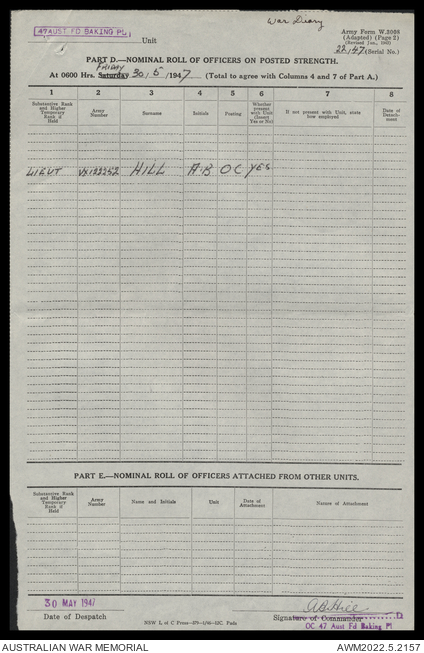 War Diary
47 AUST FD BAKING PL Unit
Army Form W.3008
(Adapted) (Page 2)
(Revised Jan., 1947)
22/47 (Serial No.)
PART D.—NOMINAL ROLL OF OFFICERS ON POSTED STRENGTH.
FRIDAY
At 0600 Hrs. Saturday 30/5/1947 (Total to agree with Columns 4 and 7 of Part A.)
1 2 3 4 5 6 7 8
Substantive Rank and Higher Temporary Rank if Held
Army Number
Surname
Initials
Posting
Whether present with Unit (Insert Yes or No)
If not present with Unit, state how employed
Date of Detachment
LIEUT VX122252 HILL A.B OC YES
PART E.—NOMINAL ROLL OF OFFICERS ATTACHED FROM OTHER UNITS.
Substantive Rank and Higher Temporary Rank if Held
Army Number
Name and Initials
Unit
Date of Attachment
Nature of Attachment
30 MAY 1947
Date of Despatch
AB Hill
Signature of Commander
OC 47 Aust Fd Baking Pl
AUSTRALIAN WAR MEMORIAL AWM2022.5.2157